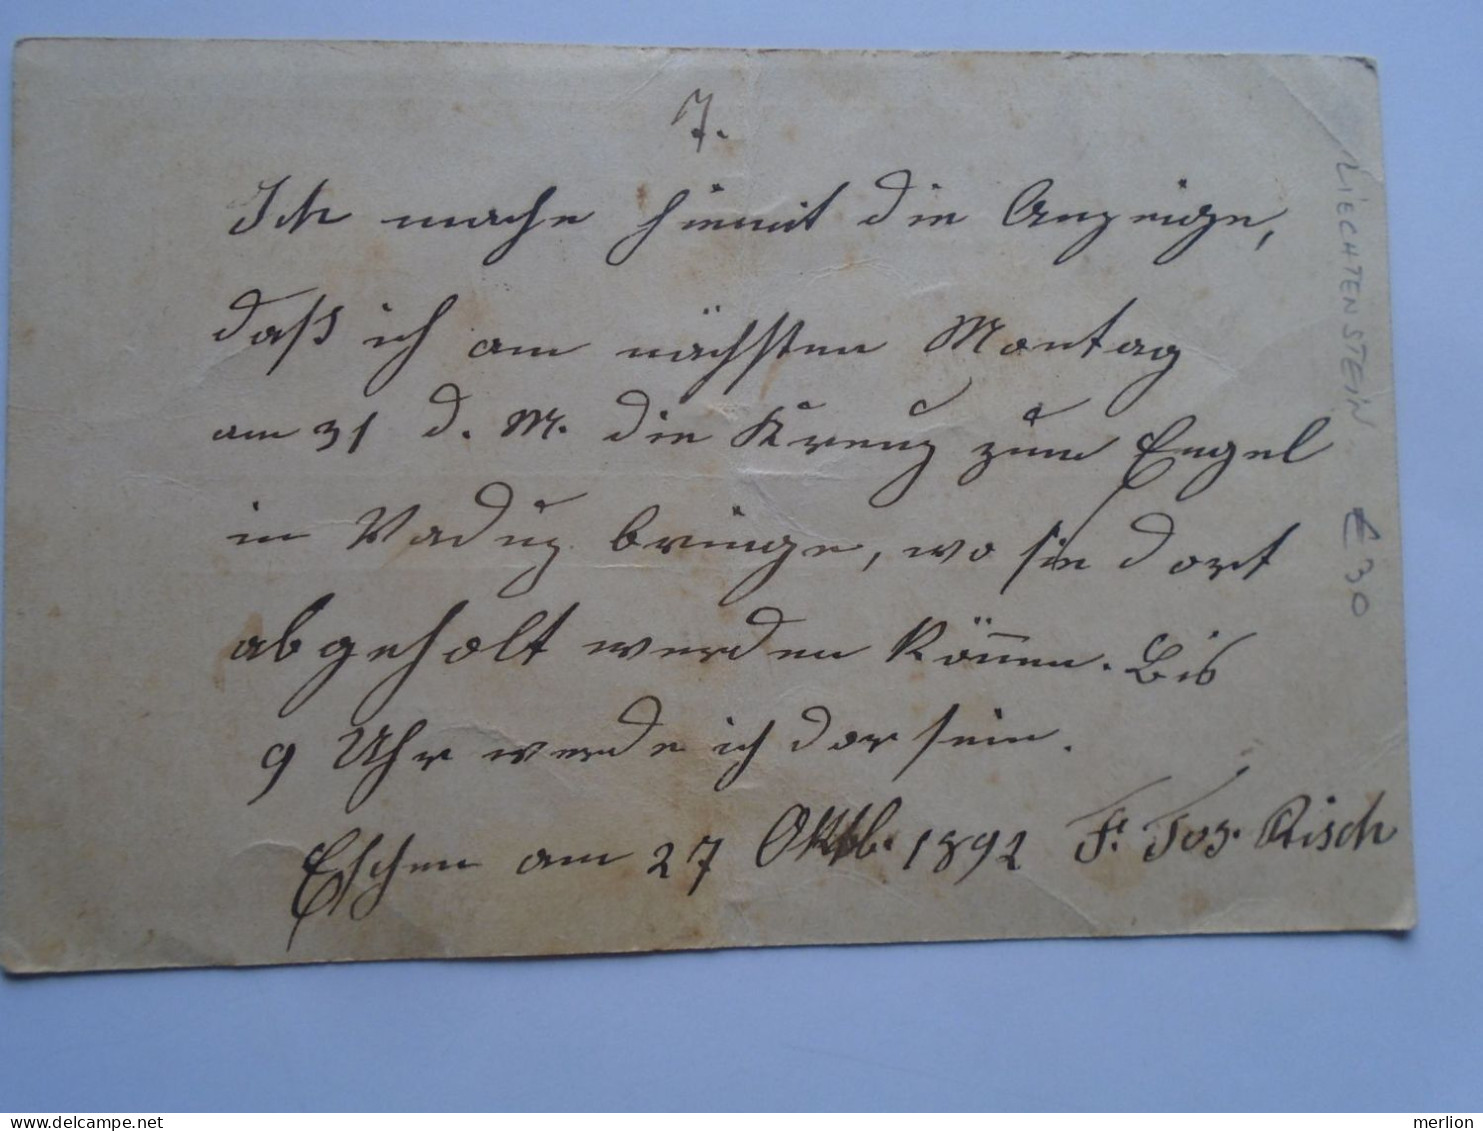 7.
Ich mache hiemit die Anzeige,
daß ich am nächsten Montag
am 31 d. M. die Kreuz zum Engel
in Vaduz bringe, wo sie dort
abgeholt werden können. Bis
9 Uhr werde ich dor sein.
Eschen am 27 Oktb. 1892 F. Jos. Risch
LIECHTENSTEIN.
€ 30
merlion